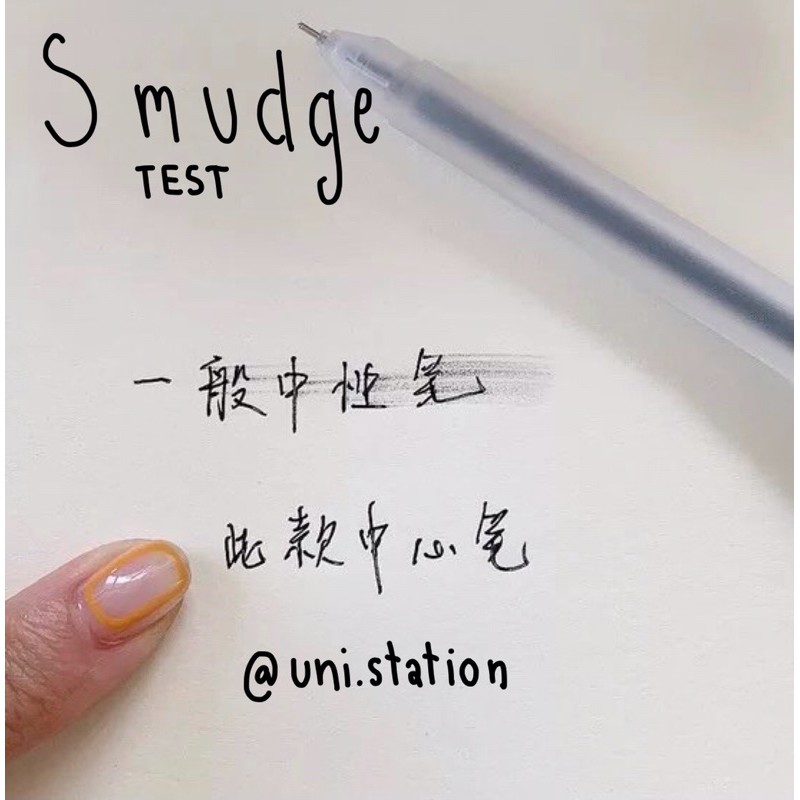 Smudge
TEST
一般中性笔
此款中心笔
@uni.station